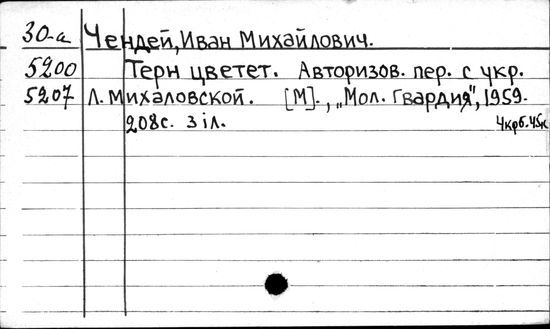 30-а Чендей, Иван Михайлович.
5200 Терн цветет. Авторизов. пер. с укр.
5207 Л. Михаловской. [М]., „Мол. Гвардия", 1959.
208с. з іл. 4крб.45к